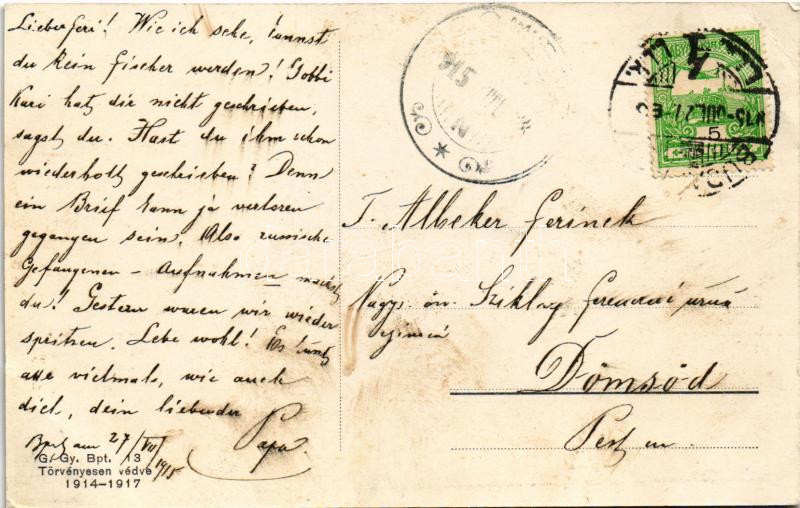 Lieber Feri! Wie ich sehe, kannst
du kein Fischer werden! Gobbi
Kari hat dir nicht geschrieben,
sagst du. Hast du ihm schon
wiederholt geschrieben? Denn
ein Brief kann ja verloren
gegangen sein. Also russische
Gefangenen-Aufnahmen machst
du! Gestern waren wir wieder
spritzen. Lebe wohl! Es küsst
alle vielmals, wie auch
dich, dein liebender
Papa.
Bpest am 27/VII
1915
G. Gy. Bpt. 13
Törvényesen védve
1914-1917
T. Albeker Ferinek
Nagys. ön. Sziklay Ferencné úrnő
Dömsöd
Pest m.
915
915 JUL 27